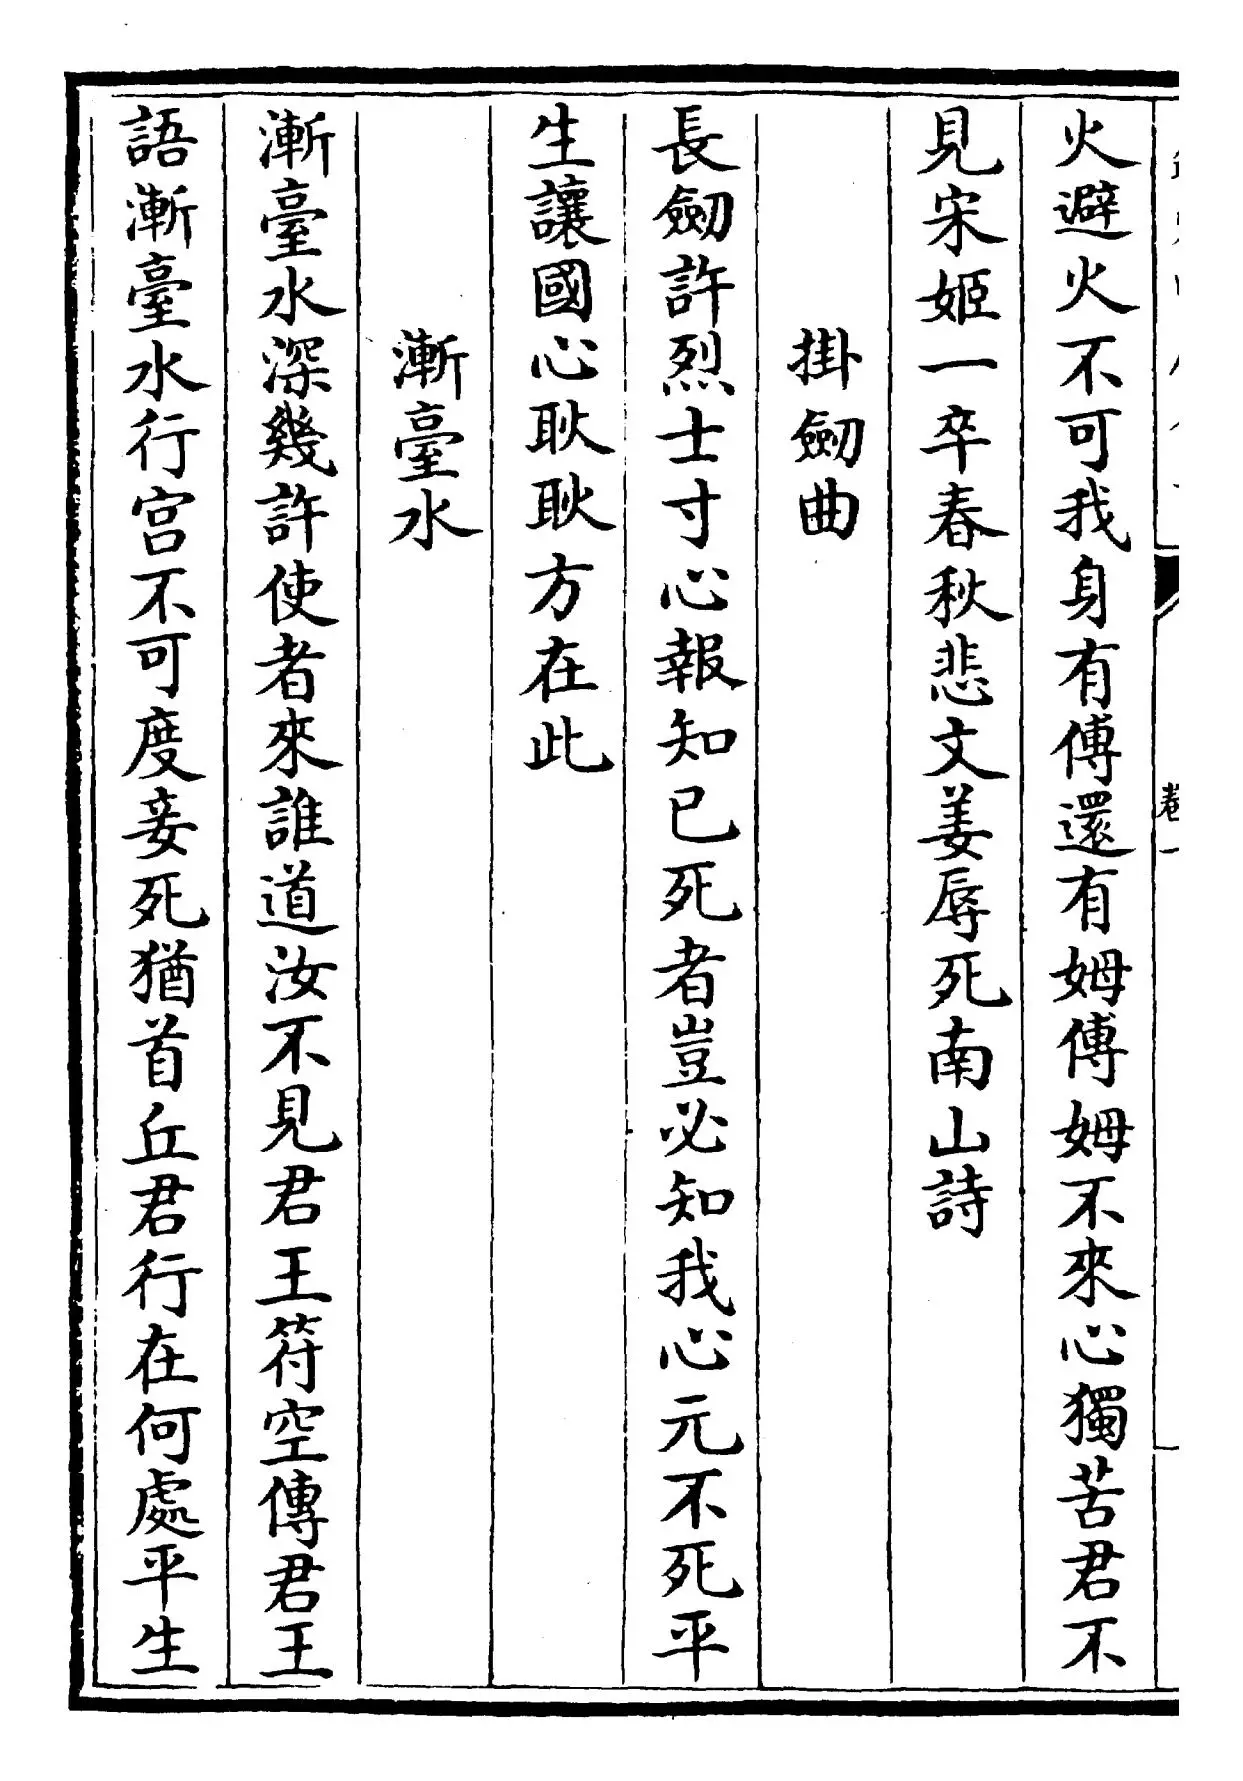 火避火不可我身有傅還有姆傅姆不來心獨苦君不
見宋姬一卒春秋悲文姜辱死南山詩
掛劒曲
長劒許烈士寸心報知已死者豈必知我心元不死平
生讓國心耿耿方在此
漸臺水
漸臺水深幾許使者來誰道汝不見君王符空傳君王
語漸臺水行宫不可度妾死猶首丘君行在何處平生